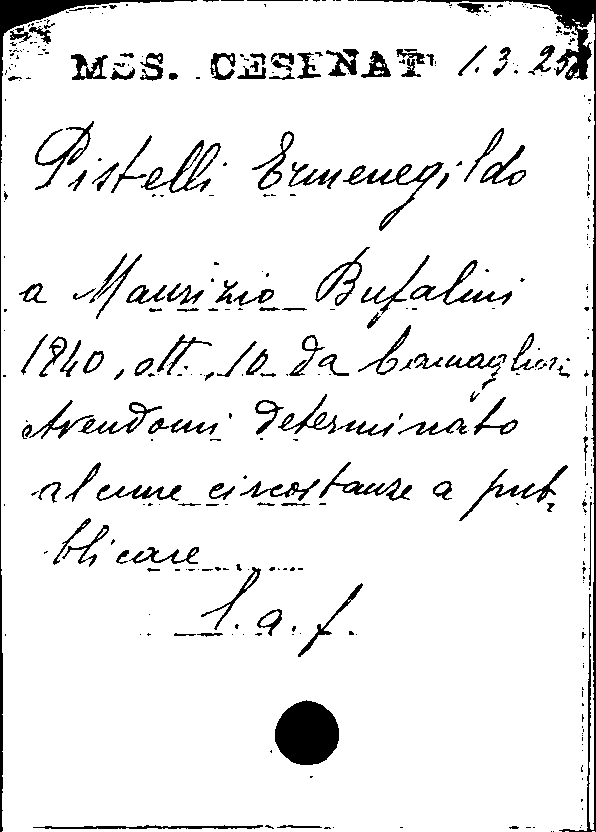 MSS. CESENAT 1.3.25
Pistelli Ermenegildo
a Maurizio Bufalini
1840, ott., 10 da Camaglion
Avendomi determinato
alcune circostanze a pub,
blicare .....
L. a. f.